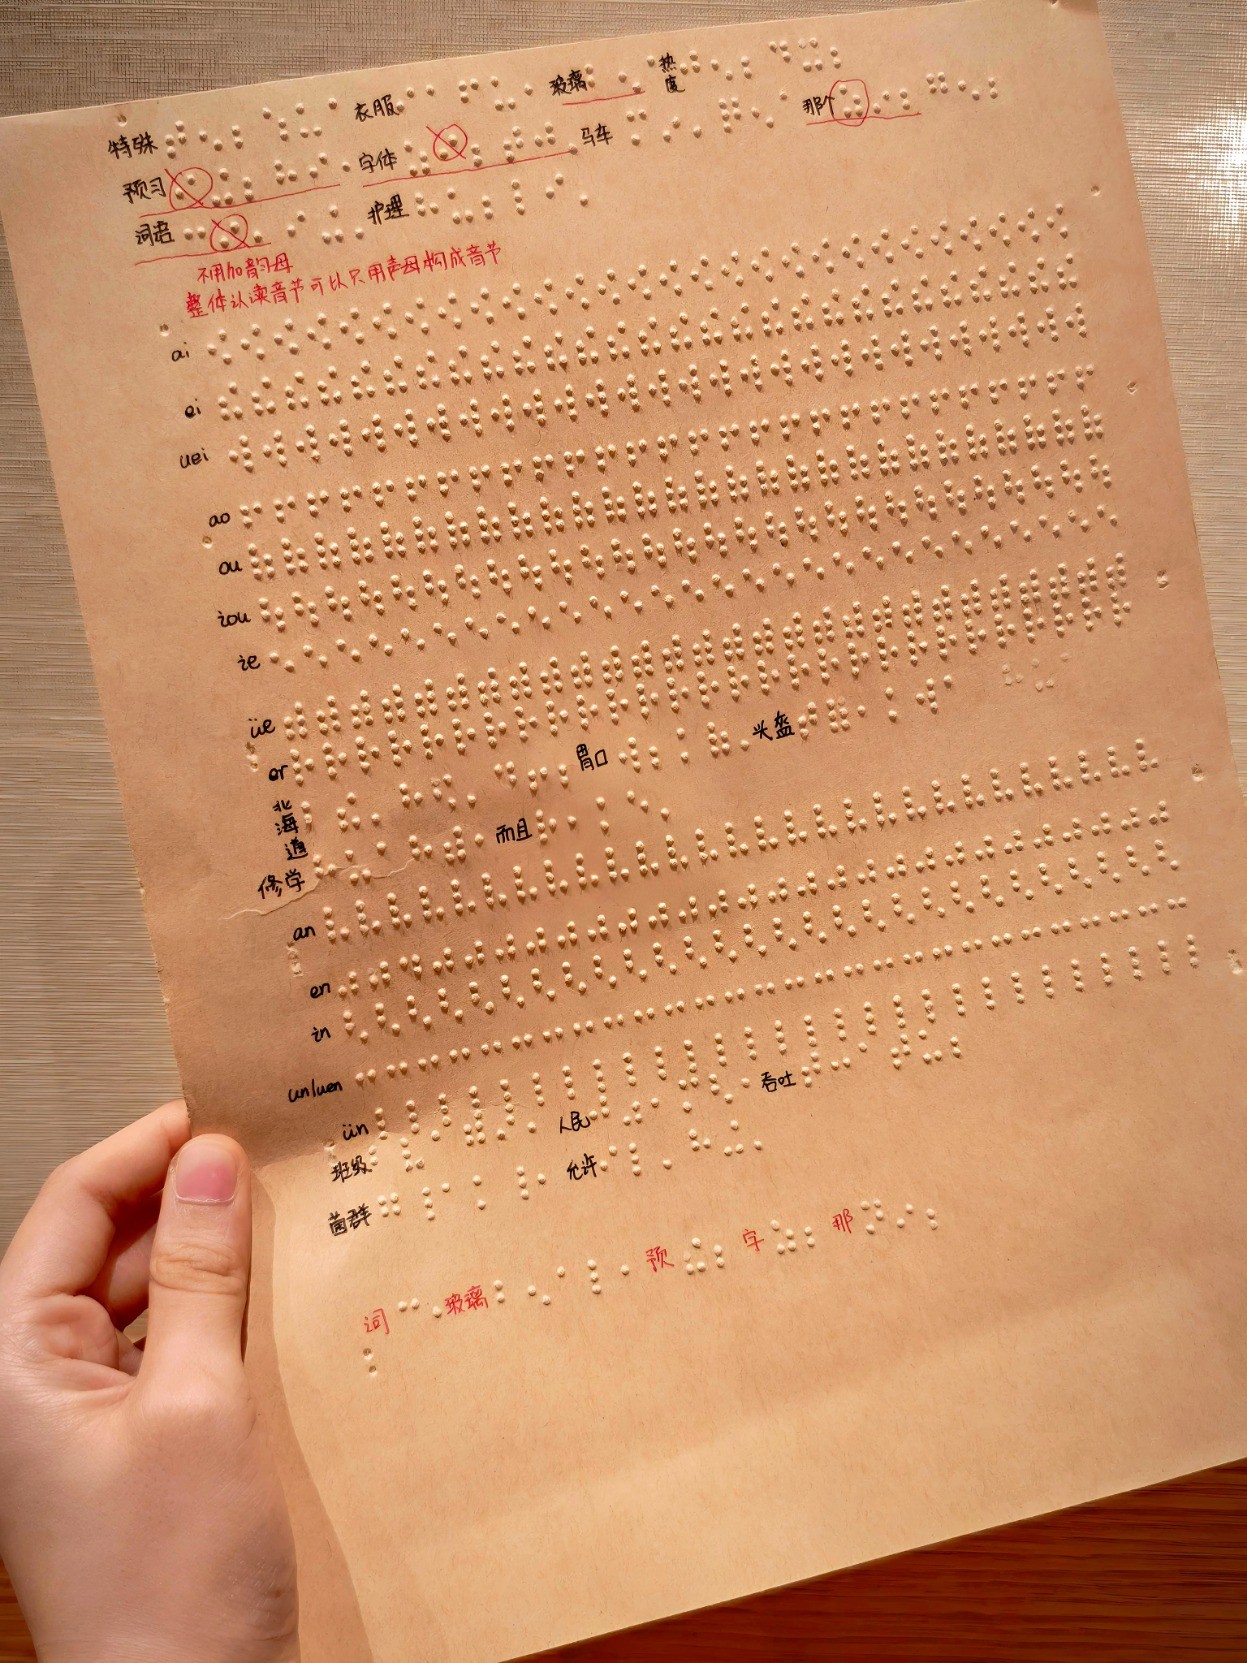 特殊 衣服 玻璃 热度
预习 字体 马车 那个
词语 护理
不用加韵母
整体认读音节可以只用声母构成音节
ai
ei
uei
ao
ou
iou
ie
üe
er
北海道 胃口 头盔
修学 而且
an
en
in
un/uen
ün
班级 人民 吞吐
菌群 允许
词 玻璃 预 字 那